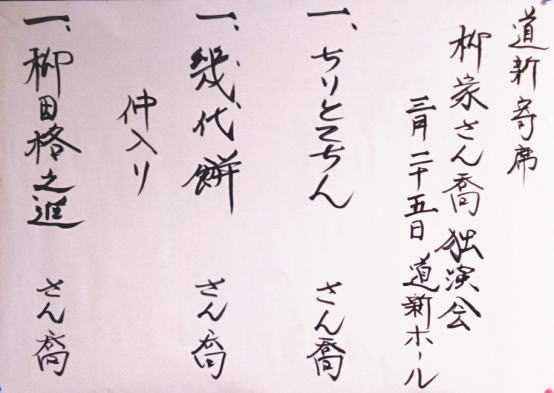 道新寄席
柳家さん喬独演会
三月二十五日 道新ホール
一、ちりとてちん さん喬
一、幾代餅 さん喬
仲入り
一、柳田格之進 さん喬